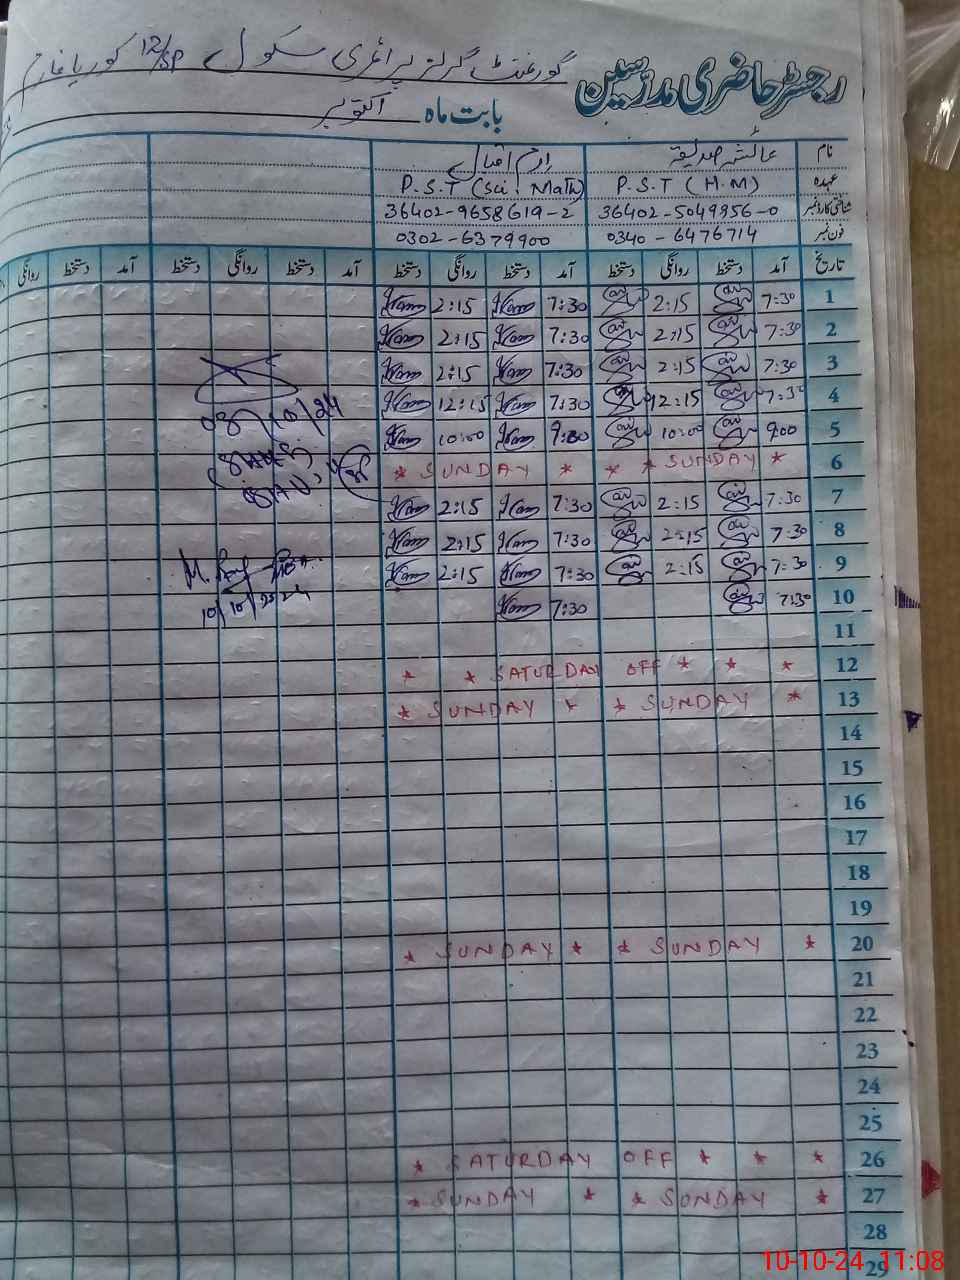 رجسٹر حاضری مدرسین گورنمنٹ گرلز پرائمری سکول 12/SP
بابت ماہ اکتوبر
نام عائشہ صدیقہ ارم اقبال
عہدہ P.S.T (H.M) P.S.T (Sci. Math)
شناختی کارڈ نمبر 36402-5049956-0 36402-9658619-2
فون نمبر 0340-6476714 0302-6379900
تاریخ آمد دستخط روانگی دستخط آمد دستخط روانگی دستخط آمد دستخط روانگی دستخط آمد دستخط روانگی
1 7:30 2:15 7:30 2:15
2 7:30 2:15 7:30 2:15
3 7:30 2:15 7:30 2:15
4 7:30 12:15 7:30 12:15
5 9:00 10:00 9:00 10:00
6 * SUNDAY * * * SUNDAY *
7 7:30 2:15 7:30 2:15
8 7:30 2:15 7:30 2:15
9 7:30 2:15 7:30 2:15
10 7:30 7:30
11
12 * * SATURDAY OFF * * *
13 * SUNDAY * * SUNDAY *
14
15
16
17
18
19
20 * SUNDAY * * SUNDAY *
21
22
23
24
25
26 * SATURDAY OFF * * *
27 * SUNDAY * * SUNDAY *
28
29
08/10/24
10/10/2024
10-10-24 11:08